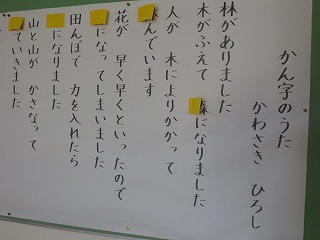 かん字のうた
かわさき ひろし
林がありました
木がふえて になりました
人が 木によりかかって
んでいます
花が 早く早くといったので
になってしまいました
田んぼで 力を入れたら
になりました
山と山が かさなって
ていきました